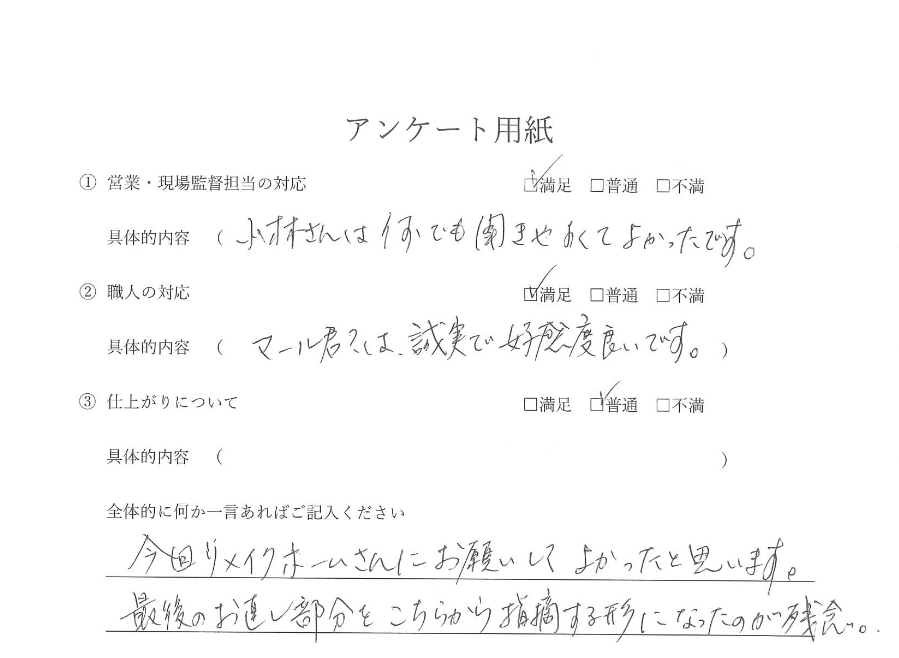 アンケート用紙
① 営業・現場監督担当の対応 ☑満足 □普通 □不満
具体的内容 ( 小林さんは何でも聞きやすくてよかったです。
② 職人の対応 ☑満足 □普通 □不満
具体的内容 ( マール君?は、誠実で好感度良いです。 )
③ 仕上がりについて □満足 ☑普通 □不満
具体的内容 ( )
全体的に何か一言あればご記入ください
今回リメイクホームさんにお願いしてよかったと思います。
最後のお直し部分をこちらから指摘する形になったのが残念。